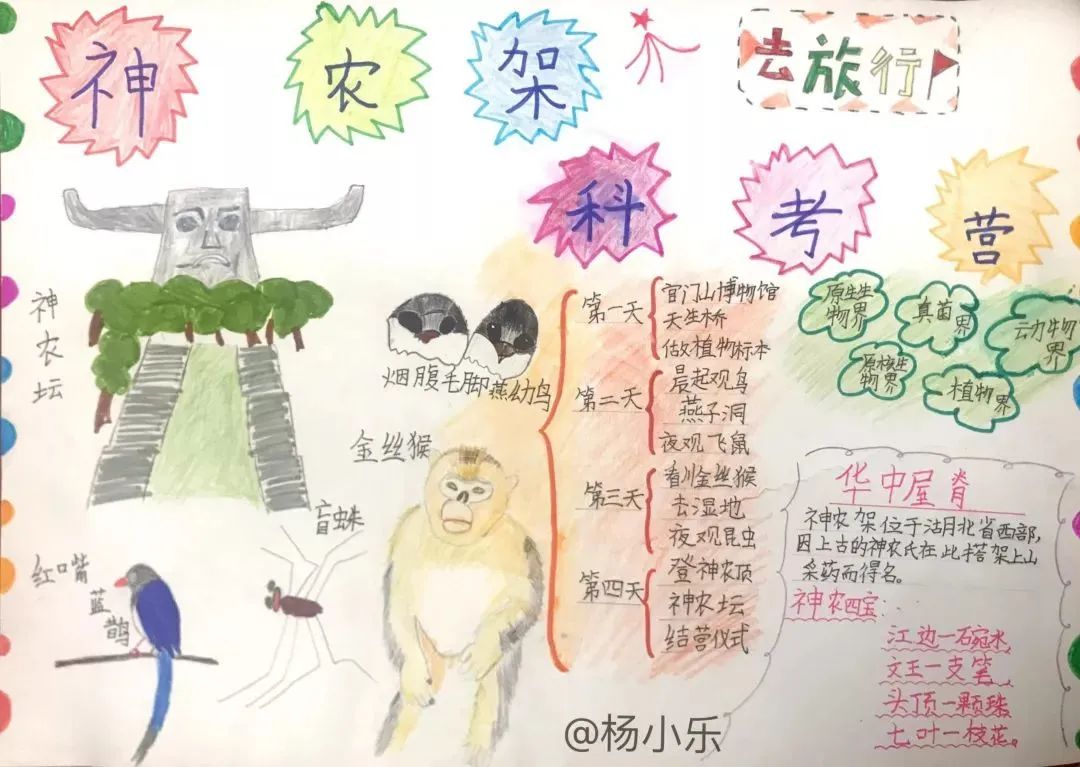 神农架
去旅行
科考营
神农坛
烟腹毛脚燕幼鸟
金丝猴
盲蛛
红嘴蓝鹊
第一天
官门山博物馆
天生桥
做植物标本
第二天
晨起观鸟
燕子洞
夜观飞鼠
第三天
看川金丝猴
去湿地
夜观昆虫
第四天
登神农顶
神农坛
结营仪式
原生生物界
真菌界
动物界
原核生物界
植物界
华中屋脊
神农架位于湖北省西部,
因上古的神农氏在此搭架上山
采药而得名。
神农四宝:
江边一碗水,
文王一支笔,
头顶一颗珠,
七叶一枝花。
@杨小乐